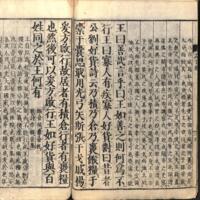 王曰善哉言乎曰王如善之則何爲不
行王曰寡人有疾寡人好貨對曰昔者
公劉好貨詩云乃積乃倉乃裹餱糧于
橐于囊思戢用光弓矢斯張干戈戚揚
爰方啓行故居者有積倉行者有裹糧
也然後可以爰方啓行王如好貨與百
姓同之於王何有